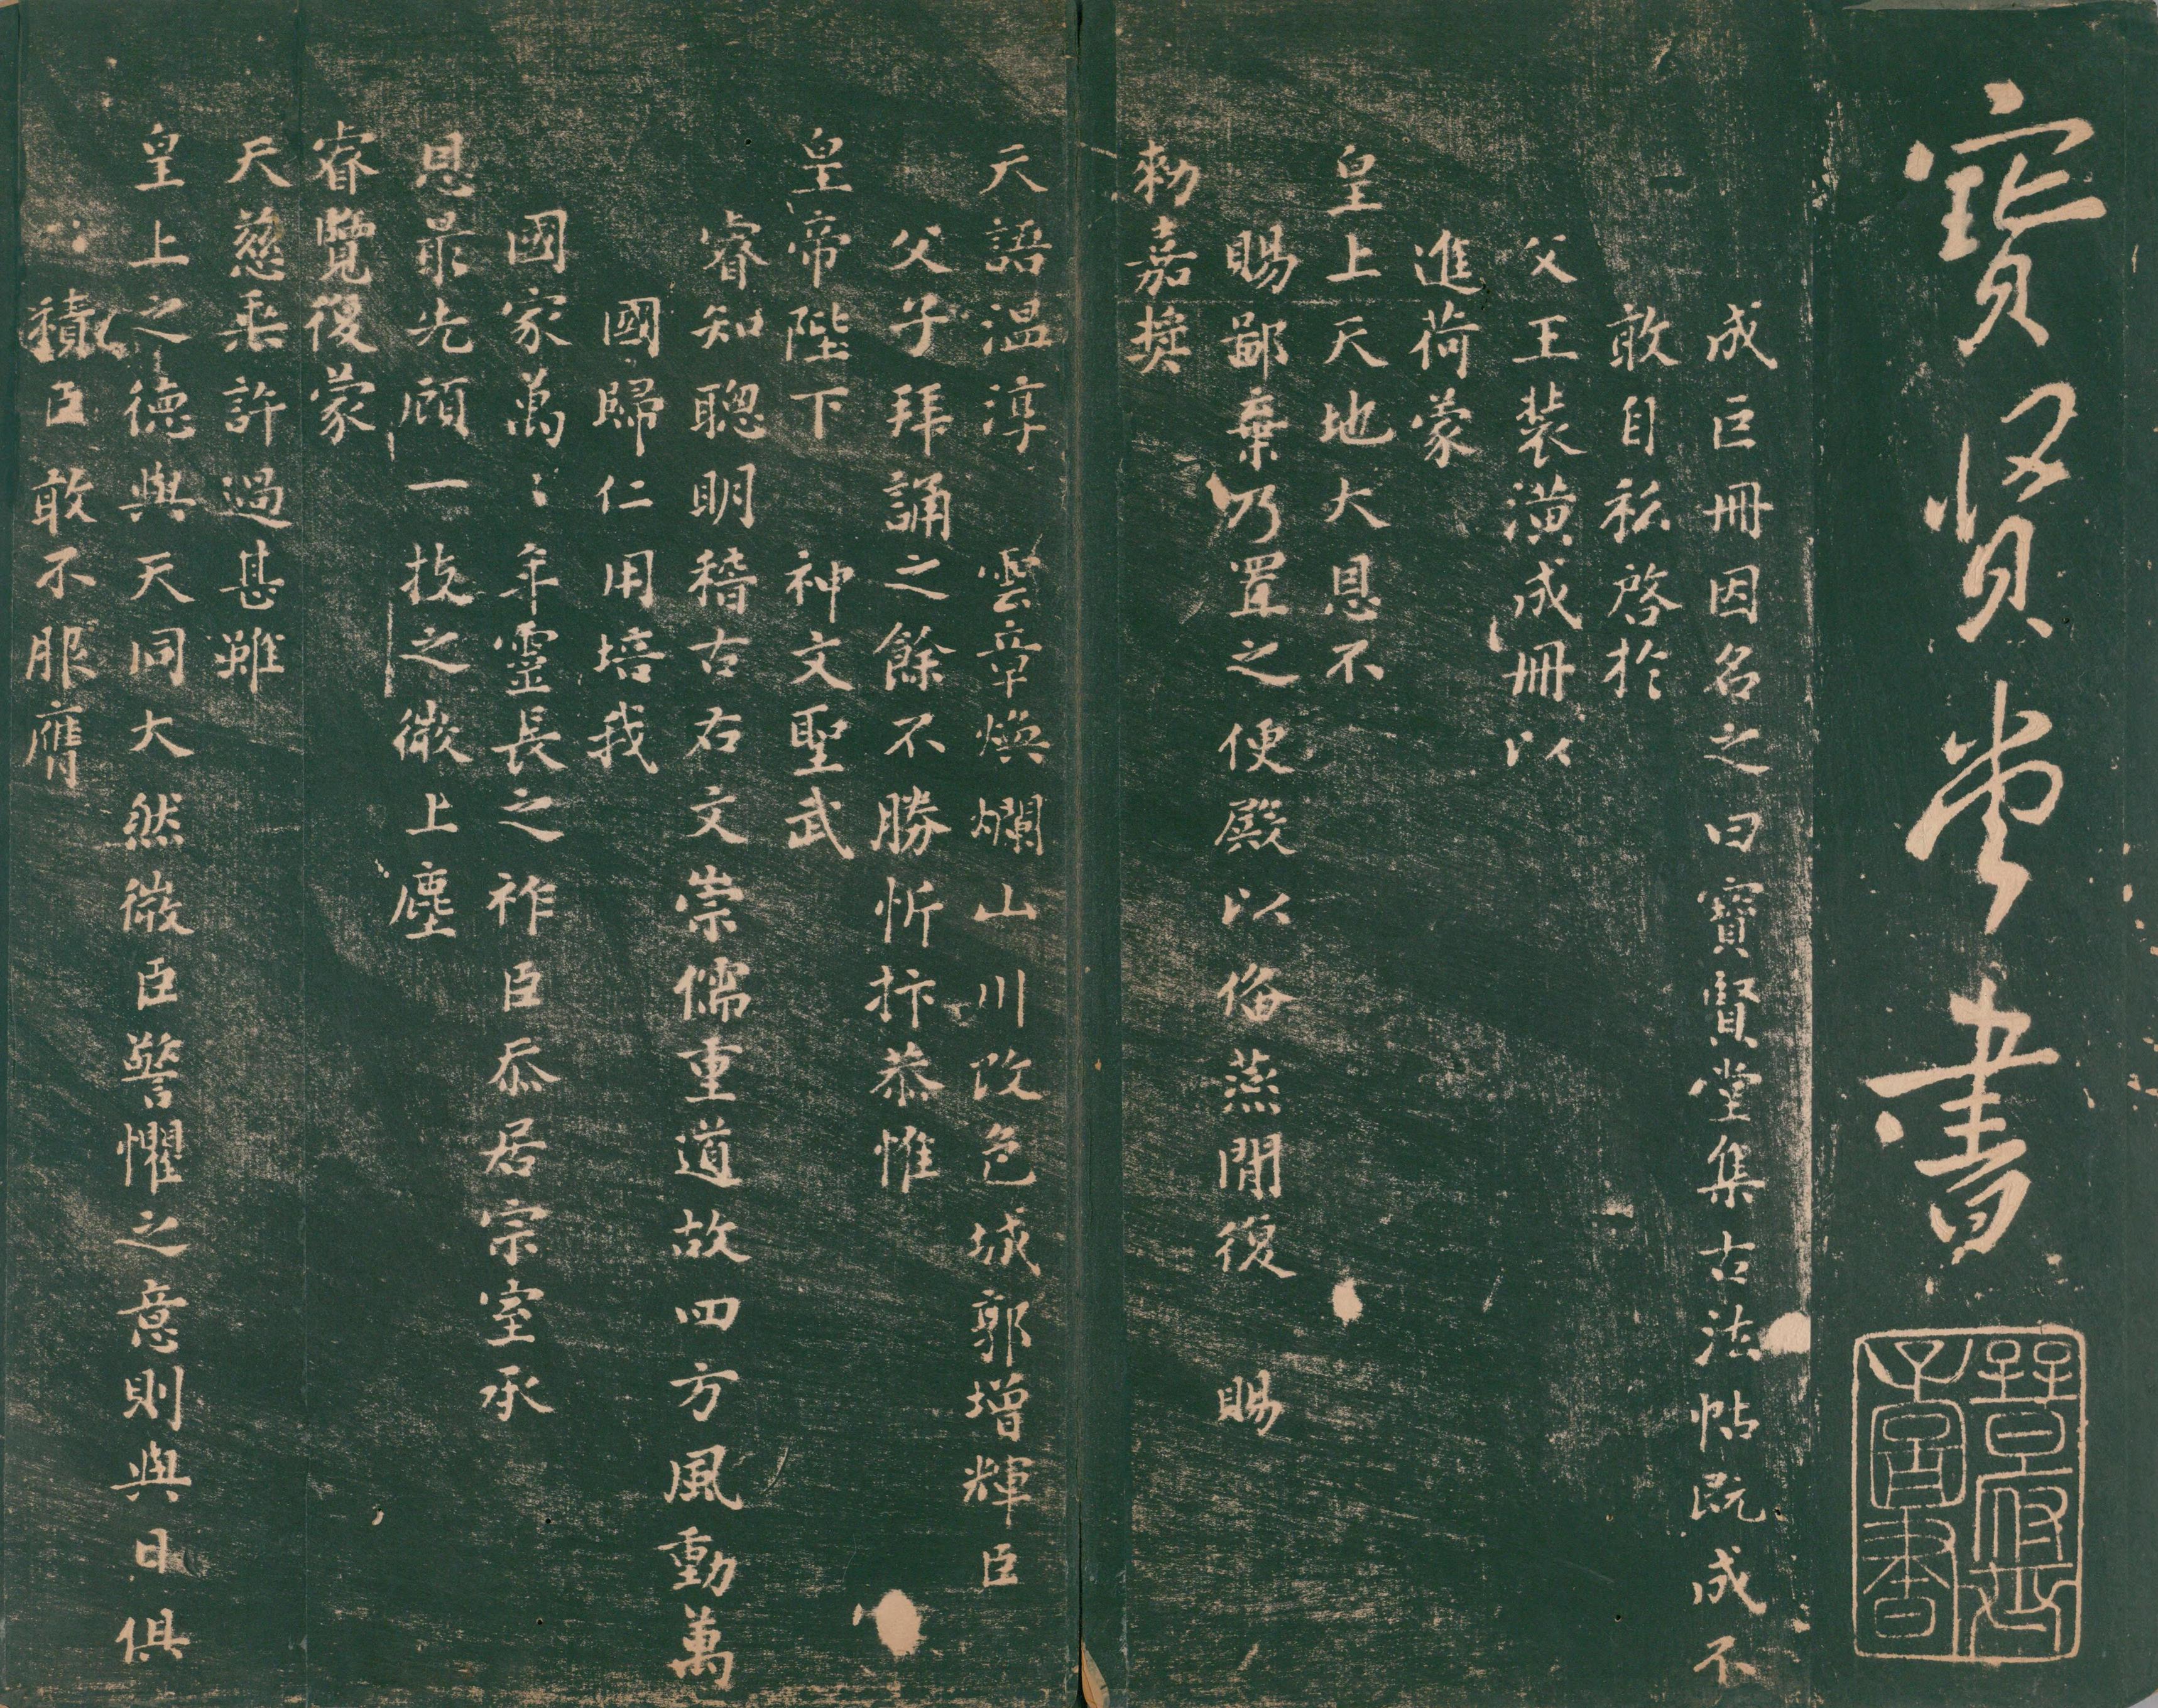 寳賢堂書
晉府世子圖書
成巨冊因名之曰寶賢堂集古法帖既成不
敢自私啓於
父王裝潢成冊以
進荷蒙
皇上天地大恩不
賜鄙棄乃置之便殿以俻燕閒復賜
勑嘉奬
天語温淳雲章煥爛山川改色城郭增輝臣
父子拜誦之餘不勝忻抃恭惟
皇帝陛下神文聖武
睿知聰明稽古右文崇儒重道故四方風動萬
國歸仁用培我
國家萬〻年靈長之祚臣忝居宗室承
恩最先顧一技之微上塵
睿覽復蒙
天慈乘許過甚雖
皇上之德與天同大然微臣警懼之意則與日俱
積臣敢不服膺